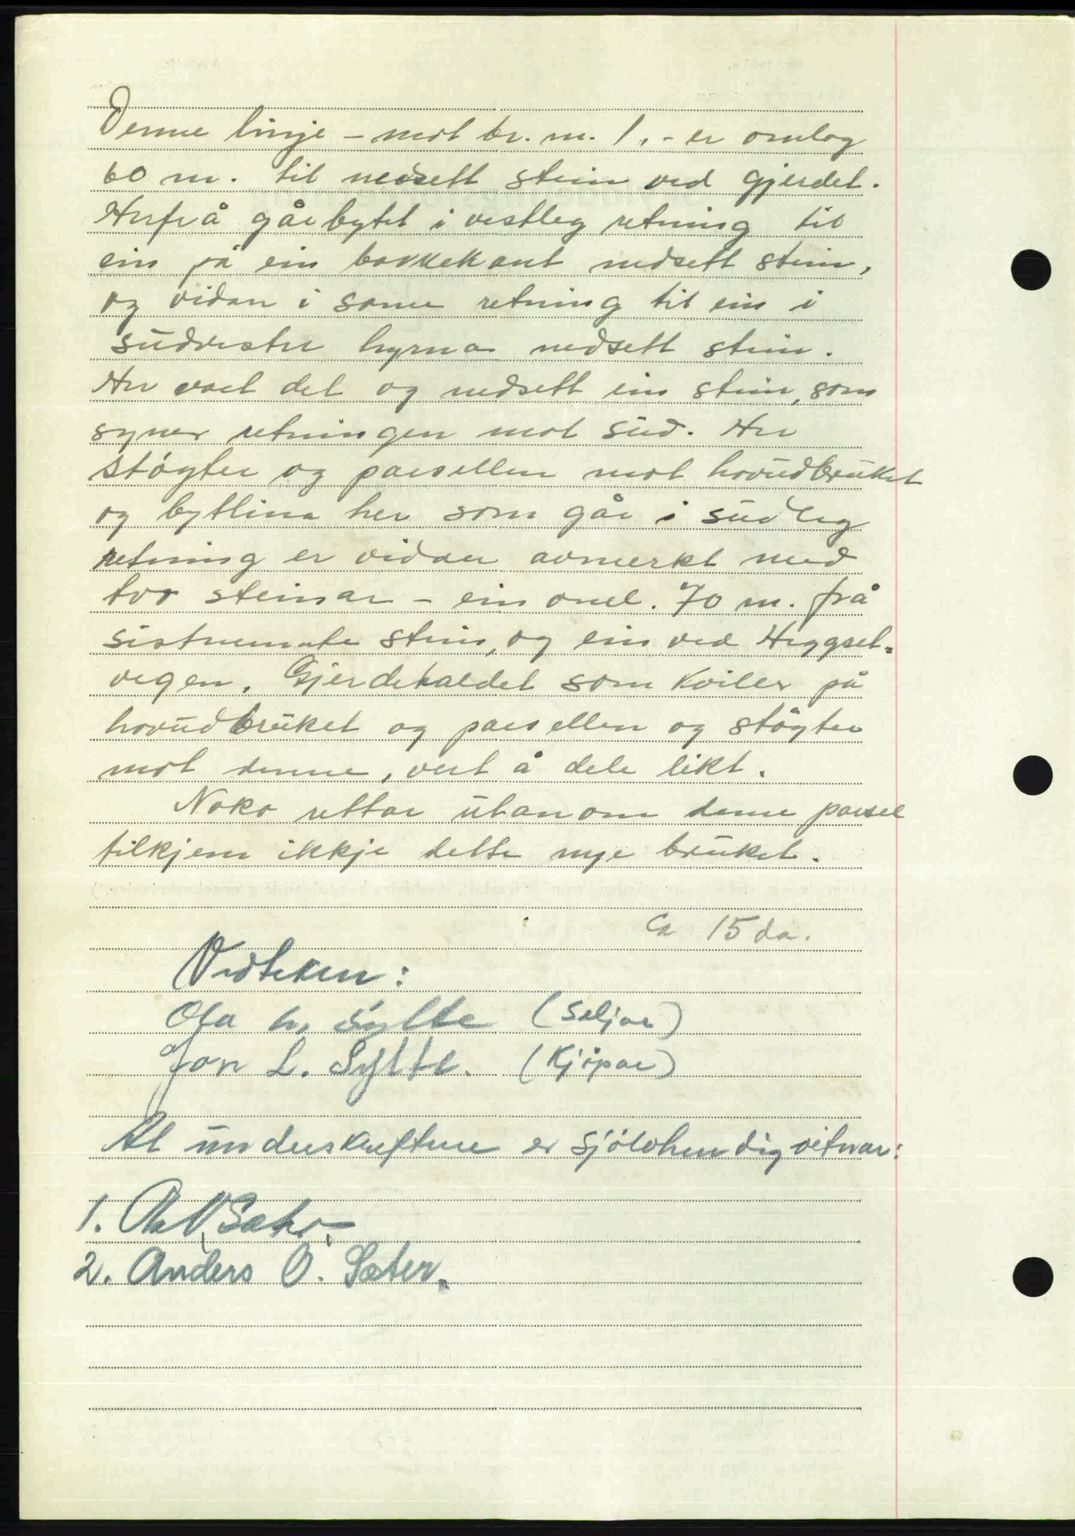 Denne linje – mot br. nr. 1. – er omlag
60 m. til nedsett stein ved gjerdet.
Herfrå går bytet i vestleg retning til
ein på ein bakkekant nedsett stein,
og vidare i same retning til ein i
sudvestre hyrna nedsett stein.
Her vart det og nedsett ein stein, som
syner retningen mot sud. Her
støyter og parsellen mot hovudbruket
og bytlina her som går i sudleg
retning er vidare avmerkt med
tvo steinar – ein oml. 70 m. frå
sistnemnte stein, og ein ved Heggset-
vegen. Gjerdehaldet som kviler på
hovudbruket og parsellen og støyter
mot denne, vert å dele likt.
Noko rettar utanom denne parsel
tilkjem ikkje dette nye bruket.
Ca 15 da.
Vedteken:
Ola Sylte (Seljar)
Jon L. Sylte. (Kjøpar)
At underskriftene er sjølvhendig vitnar:
1. Ola Sæter
2. Anders O. Sæter.